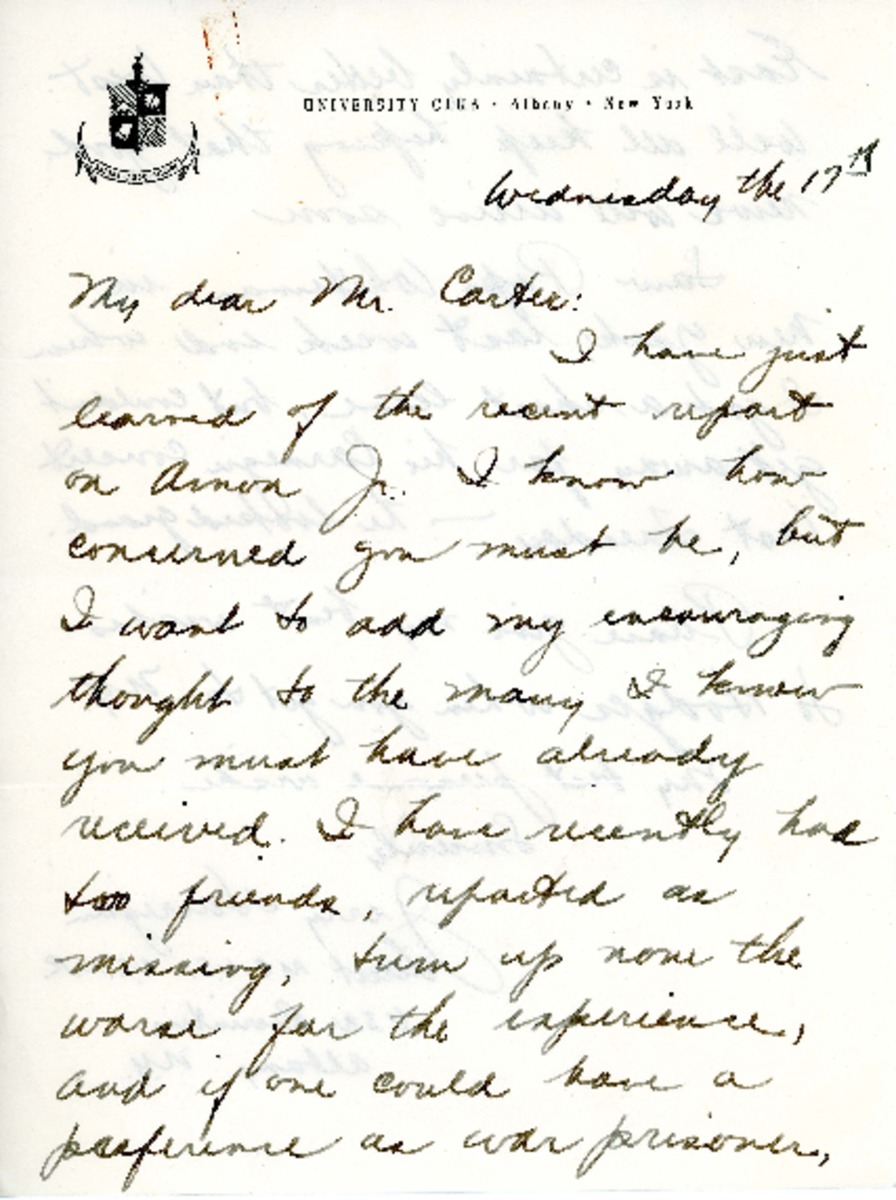 UNIVERSITY CLUB · Albany · New York
Wednesday the 17th
My dear Mr. Carter:
I have just
learned of the recent report
on Amon Jr. I know how
concerned you must be, but
I want to add my encouraging
thought to the many I know
you must have already
received. I have recently had
two friends, reported as
missing, turn up none the
worse for the experience,
and if one could have a
preference as war prisoner,